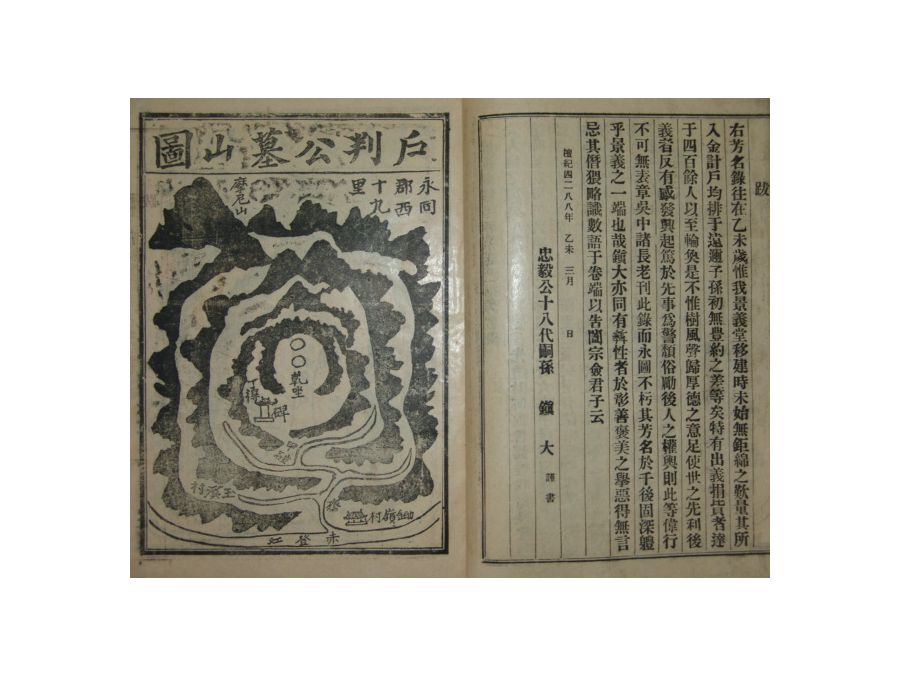 跋
右芳名錄往在乙未歲惟我景義堂移建時未始無鉅綿之歎量其所
入金計戶均排于遠邇子孫初無豊約之差等矣特有出義捐貨者達
于四百餘人以至輪奐是不惟樹風聲歸厚德之意足使世之先利後
義者反有感發興起篤於先事爲警頹俗勵後人之權輿則此等偉行
不可無表章吳中諸長老刊此錄而永圖不朽其芳名於千後固深韙
乎景義之一端也哉鎭大亦同有彛性者於彰善褒美之擧惡得無言
忌其僭猥略識數語于卷端以告闔宗僉君子云
檀紀四二八八年 乙未 三月 日
忠毅公十八代嗣孫 鎭 大 謹書
戶判公墓山圖
永同
郡西
十九
里
摩尼山
乾坐
碑
村
嶺村
赤登江